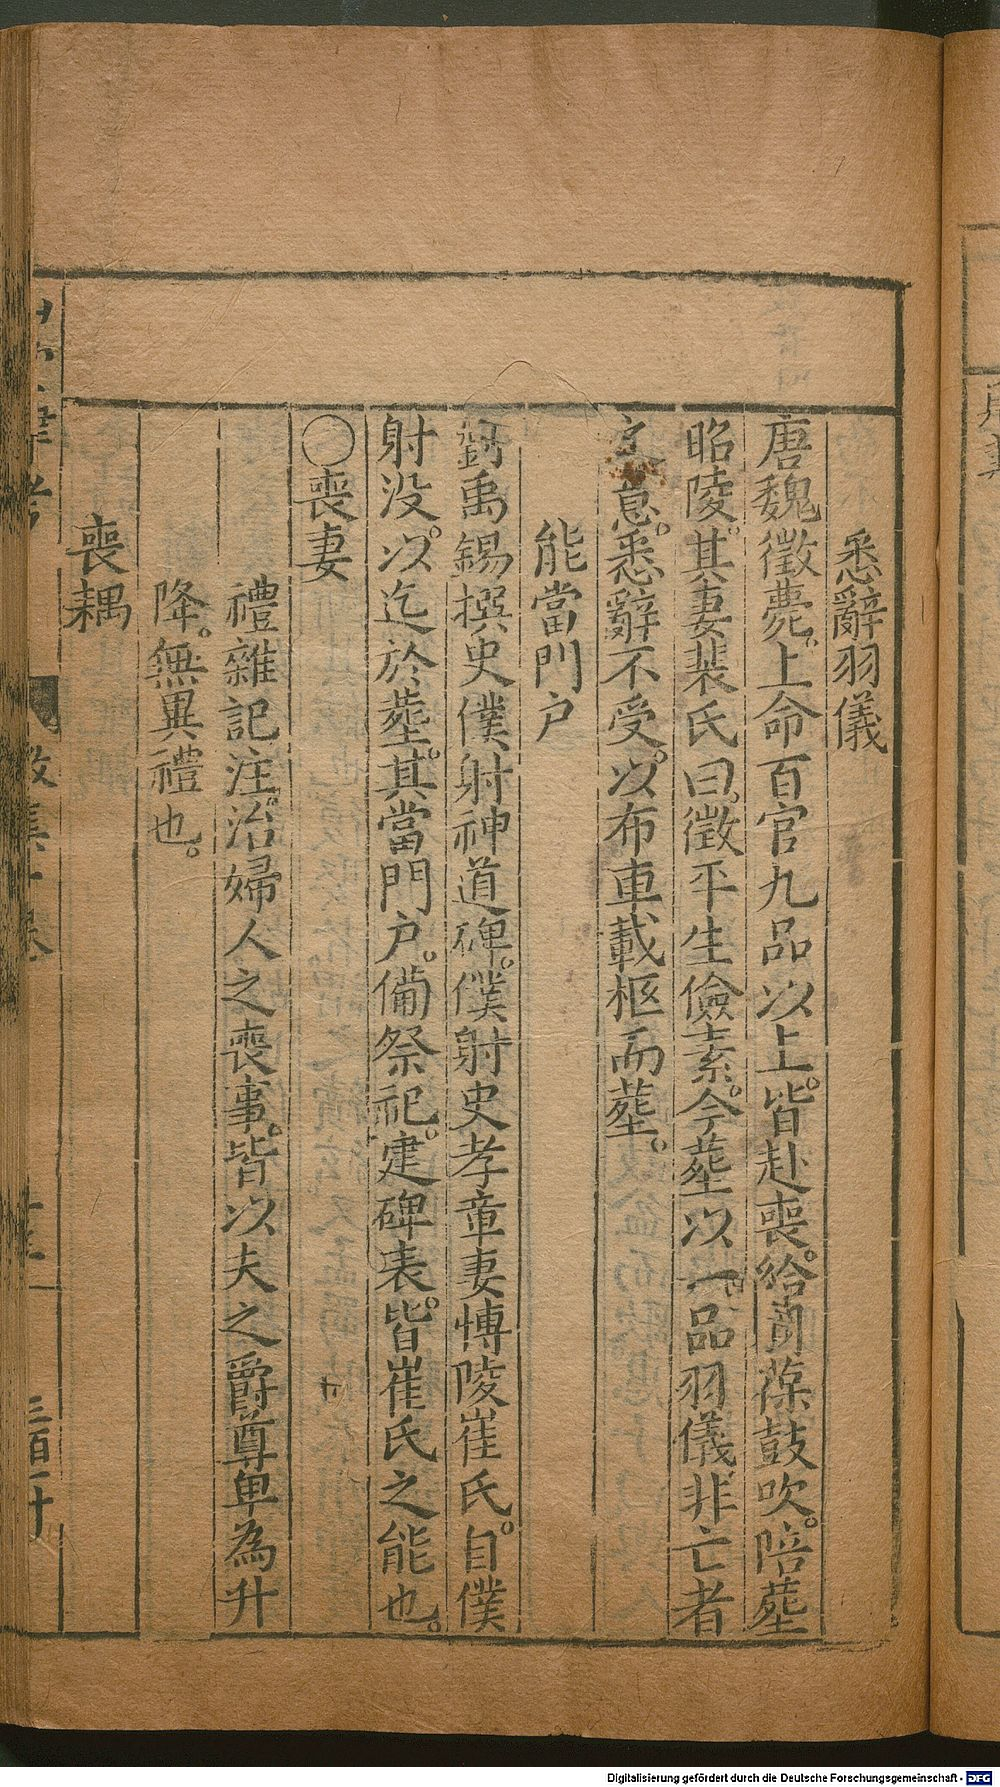 悉辭羽儀
唐魏徵薨。上命百官九品以上。皆赴喪。給羽葆鼓吹。陪塟
昭陵。其妻裴氏曰。徵平生儉素。今塟以一品羽儀。非亡者
之意。悉辭不受。以布車載柩而塟。
能當門户
劉禹錫撰史僕射神道碑。僕射史孝章妻博陵崔氏。自僕
射没。以迄於塟。其當門户。備祭祀。建碑表。皆崔氏之能也。
〇喪妻
禮雜記注。治婦人之喪事。皆以夫之爵尊卑為升
降。無異禮也。
喪耦
Digitalisierung gefördert durch die Deutsche Forschungsgemeinschaft - DFG